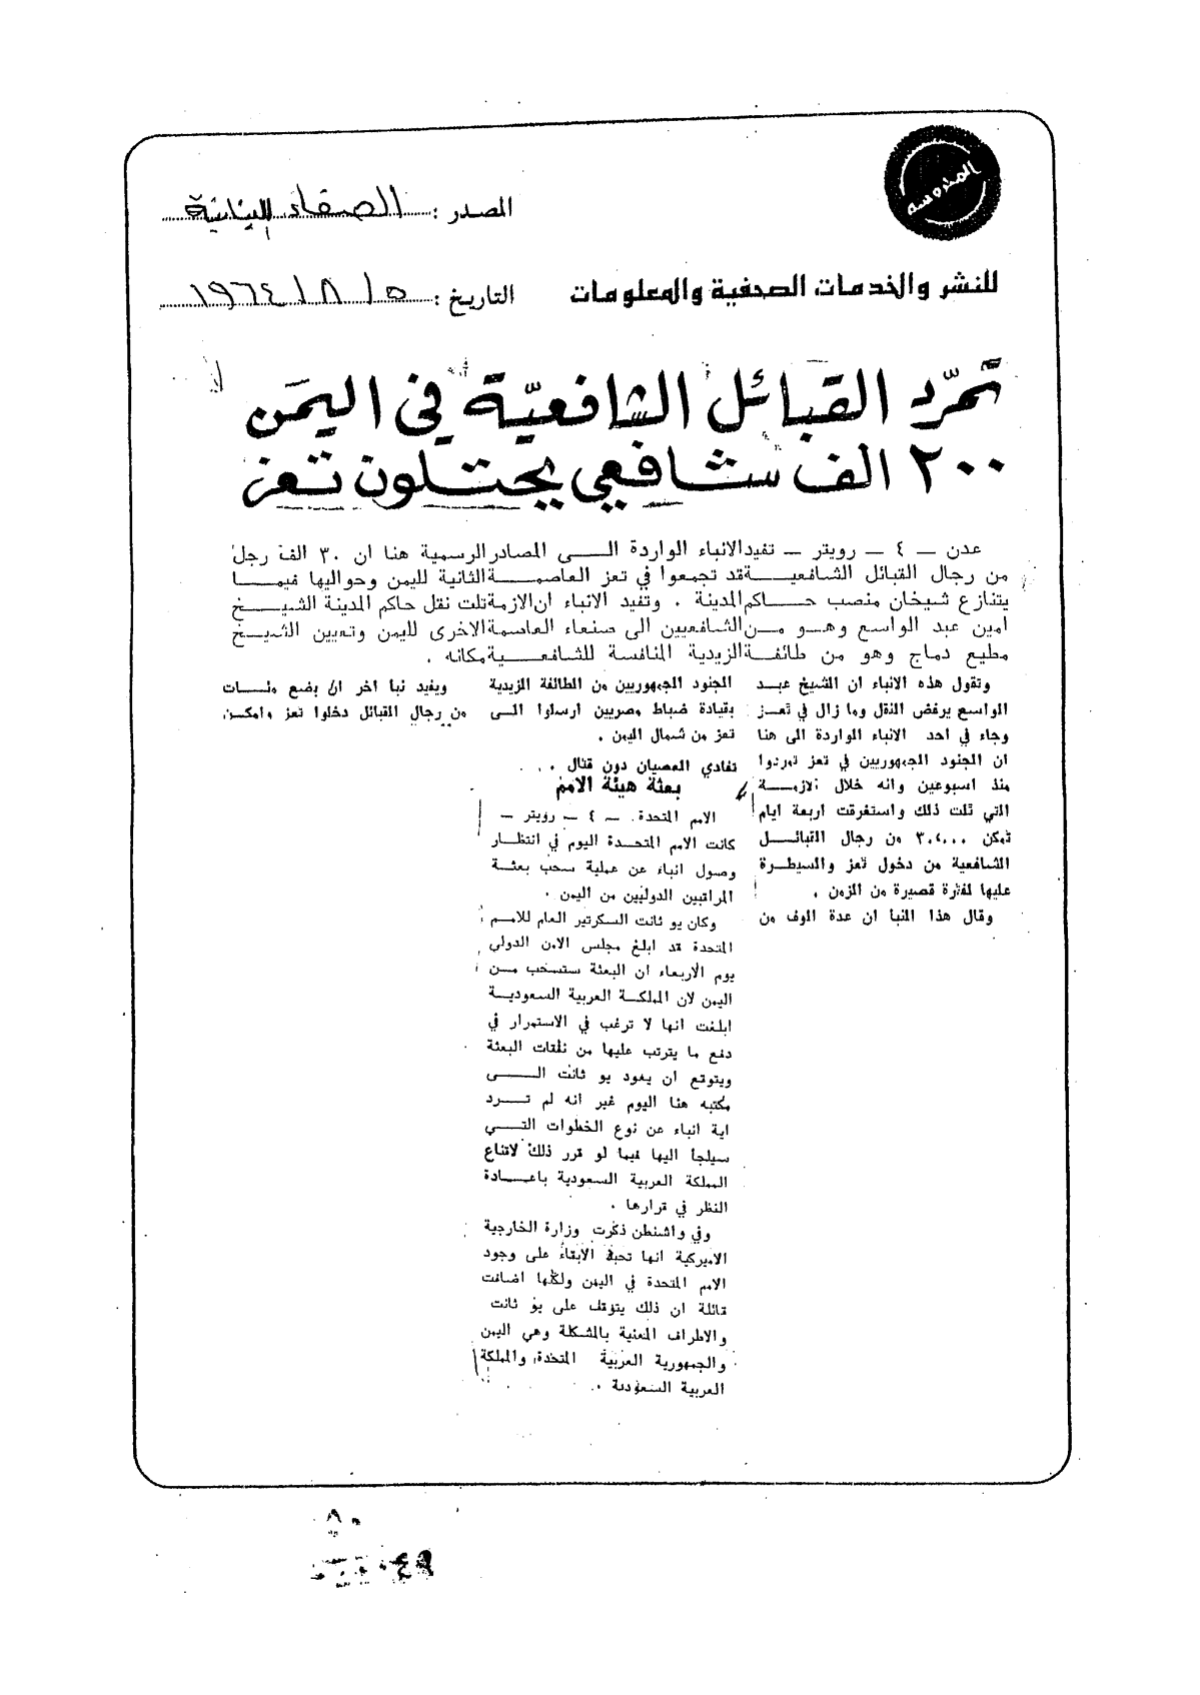 المحروسة
المصدر : الصفاء اللبنانية
للنشر والخدمات الصحفية والمعلومات
التاريخ : ٥ / ٨ / ١٩٦٤
تمرّد القبائل الشافعيّة في اليمَن
٢٠٠ الف شافعي يحتلون تعز
عدن – ٤ – رويتر – تفيد الانباء الواردة الى المصادر الرسمية هنا ان ٣٠ الف رجل
من رجال القبائل الشافعية قد تجمعوا في تعز العاصمة الثانية لليمن وحواليها فيما
يتنازع شيخان منصب حاكم المدينة . وتفيد الانباء ان الازمة تلت نقل حاكم المدينة الشيخ
امين عبد الواسع وهو من الشافعيين الى صنعاء العاصمة الاخرى لليمن وتعيين الشيخ
مطيع دماج وهو من طائفة الزيدية المنافسة للشافعية مكانه .
وتقول هذه الانباء ان الشيخ عبد
الواسع يرفض النقل وما زال في تعز
وجاء في احد الانباء الواردة الى هنا
ان الجنود الجمهوريين في تعز تمردوا
منذ اسبوعين وانه خلال الازمة
التي تلت ذلك واستغرقت اربعة ايام
تمكن ٣٠،٠٠٠ من رجال القبائل
الشافعية من دخول تعز والسيطرة
عليها لفترة قصيرة من الزمن .
وقال هذا النبا ان عدة الوف من
الجنود الجمهوريين من الطائفة الزيدية
بقيادة ضباط مصريين ارسلوا الى
تعز من شمال اليمن .
ويفيد نبا اخر ان بضع مئات
من رجال القبائل دخلوا تعز وامكن
تفادي العصيان دون قتال .
بعثة هيئة الامم
الامم المتحدة – ٤ – رويتر –
كانت الامم المتحدة اليوم في انتظار
وصول انباء عن عملية سحب بعثة
المراقبين الدوليين من اليمن .
وكان يو ثانت السكرتير العام للامم
المتحدة قد ابلغ مجلس الامن الدولي
يوم الاربعاء ان البعثة ستسحب من
اليمن لان المملكة العربية السعودية
ابلغت انها لا ترغب في الاستمرار في
دفع ما يترتب عليها من نفقات البعثة
ويتوقع ان يعود يو ثانت الى
مكتبه هنا اليوم غير انه لم ترد
اية انباء عن نوع الخطوات التي
سيلجا اليها فيما لو قرر ذلك لاقناع
المملكة العربية السعودية باعادة
النظر في قرارها .
وفي واشنطن ذكرت وزارة الخارجية
الاميركية انها تحبذ الابقاء على وجود
الامم المتحدة في اليمن ولكنها اضافت
قائلة ان ذلك يتوقف على يو ثانت
والاطراف المعنية بالمشكلة وهي اليمن
والجمهورية العربية المتحدة والمملكة
العربية السعودية .